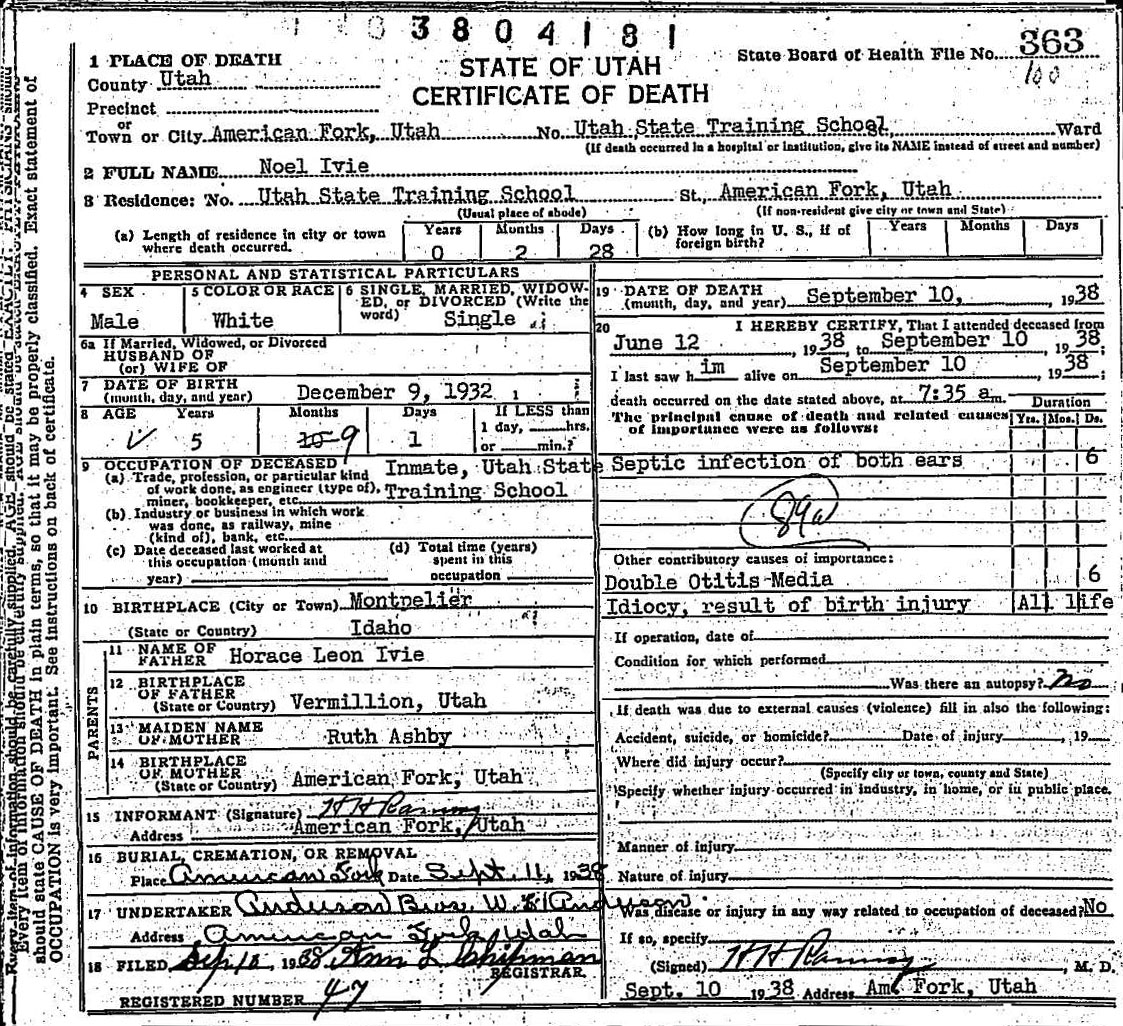 3804181
State Board of Health File No. 363
100
STATE OF UTAH
CERTIFICATE OF DEATH
1 PLACE OF DEATH
County Utah
Precinct
or
Town or City American Fork, Utah No. Utah State Training School, Ward
(If death occurred in a hospital or institution, give its NAME instead of street and number)
2 FULL NAME Noel Ivie
3 Residence: No. Utah State Training School St., American Fork, Utah
(Usual place of abode) (If non-resident give city or town and State)
(a) Length of residence in city or town where death occurred. Years 0 Months 2 Days 28
(b) How long in U. S., if of foreign birth? Years Months Days
PERSONAL AND STATISTICAL PARTICULARS
4 SEX
Male
5 COLOR OR RACE
White
6 SINGLE, MARRIED, WIDOW-
ED, or DIVORCED (Write the
word) Single
6a If Married, Widowed, or Divorced
HUSBAND OF
(or) WIFE OF
7 DATE OF BIRTH
(month, day, and year) December 9, 1932
8 AGE Years Months Days If LESS than
5 10 9 1 1 day, hrs.
or min.?
9 OCCUPATION OF DECEASED Inmate, Utah State
(a) Trade, profession, or particular kind
of work done, as engineer (type of), Training School
miner, bookkeeper, etc.
(b) Industry or business in which work
was done, as railway, mine
(kind of), bank, etc.
(c) Date deceased last worked at
this occupation (month and
year)
(d) Total time (years)
spent in this
occupation
10 BIRTHPLACE (City or Town) Montpelier
(State or Country) Idaho
PARENTS
11 NAME OF
FATHER Horace Leon Ivie
12 BIRTHPLACE
OF FATHER
(State or Country) Vermillion, Utah
13 MAIDEN NAME
OF MOTHER Ruth Ashby
14 BIRTHPLACE
OF MOTHER
(State or Country) American Fork, Utah
15 INFORMANT (Signature) H H Ramsay
Address American Fork, Utah
16 BURIAL, CREMATION, OR REMOVAL
Place American Fork Date Sept. 11, 1938
17 UNDERTAKER Anderson Bros. W. E. Anderson
Address American Fork, Utah
18 FILED Sep 1938 Ann L Chipman
REGISTRAR
REGISTERED NUMBER 47
19 DATE OF DEATH
(month, day, and year) September 10, , 1938
20 I HEREBY CERTIFY, That I attended deceased from
June 12 , 1938, to September 10 , 1938;
I last saw him alive on September 10 , 1938;
death occurred on the date stated above, at 7:35 a m.
Duration
The principal cause of death and related causes
of importance were as follows: Yrs. Mos. Ds.
Septic infection of both ears 6
89a
Other contributory causes of importance:
Double Otitis Media 6
Idiocy, result of birth injury All life
If operation, date of
Condition for which performed
Was there an autopsy? No
If death was due to external causes (violence) fill in also the following:
Accident, suicide, or homicide? Date of injury , 19
Where did injury occur?
(Specify city or town, county and State)
Specify whether injury occurred in industry, in home, or in public place.
Manner of injury
Nature of injury
Was disease or injury in any way related to occupation of deceased? No
If so, specify
(Signed) H H Ramsay , M. D.
Sept. 10 1938 Address Am. Fork, Utah
Every item of information should be carefully supplied. AGE should be stated EXACTLY. PHYSICIANS should
should state CAUSE OF DEATH in plain terms, so that it may be properly classified. Exact statement of
OCCUPATION is very important. See instructions on back of certificate.